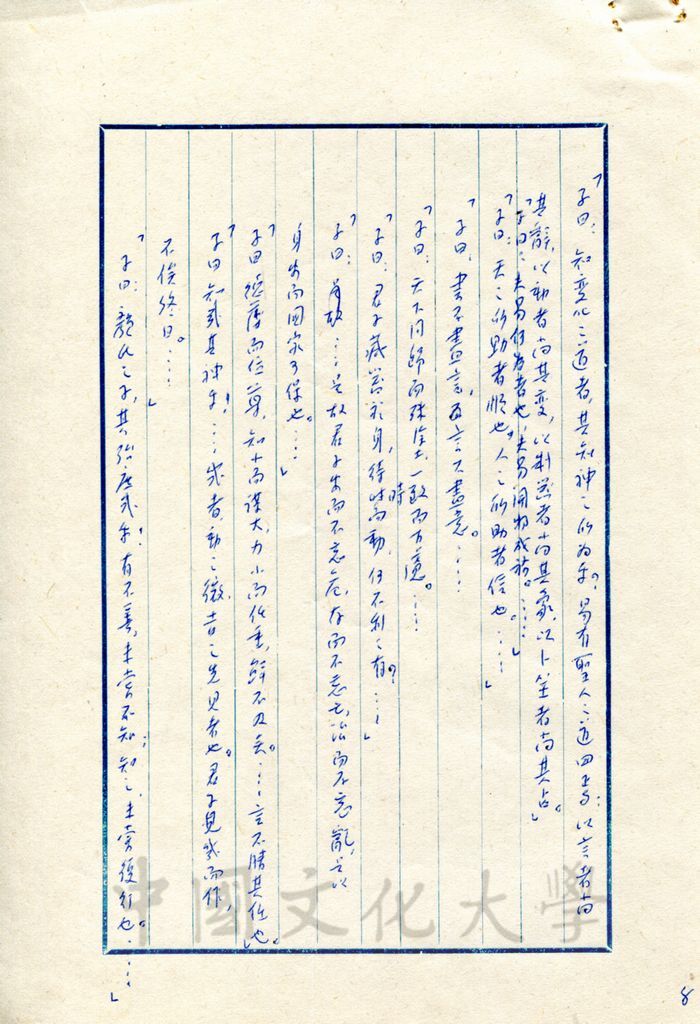 「子曰：知变化之道者，其知神之所為乎？易有聖人之道四焉：以言者尚
其辭，以動者尚其变，以制器者尚其象，以卜筮者尚其占。」
「子曰：夫易何為者也，夫易開物成務。……」
「子曰：天之所助者順也。人之所助者信也。……」
「子曰：書不盡言，言不盡意。……
「子曰：天下同歸而殊塗，一致而百慮。……
「子曰：君子藏器於身，待時而動，何不利之有？……」
「子曰：……是故君子安而不忘危，存而不忘亡，治而不忘亂，是以
身安而國家可保也。……」
「子曰德薄而位尊，知小而謀大，力小而任重，鮮不及矣。……言不勝其任也。」
「子曰知幾其神乎！……幾者，動之微，吉之先見者也。君子見幾而作，
不俟終日。……」
「子曰：顏氏之子，其殆庶幾乎！有不善，未嘗不知，知之，未嘗復行也。……」
中國文化大學
8